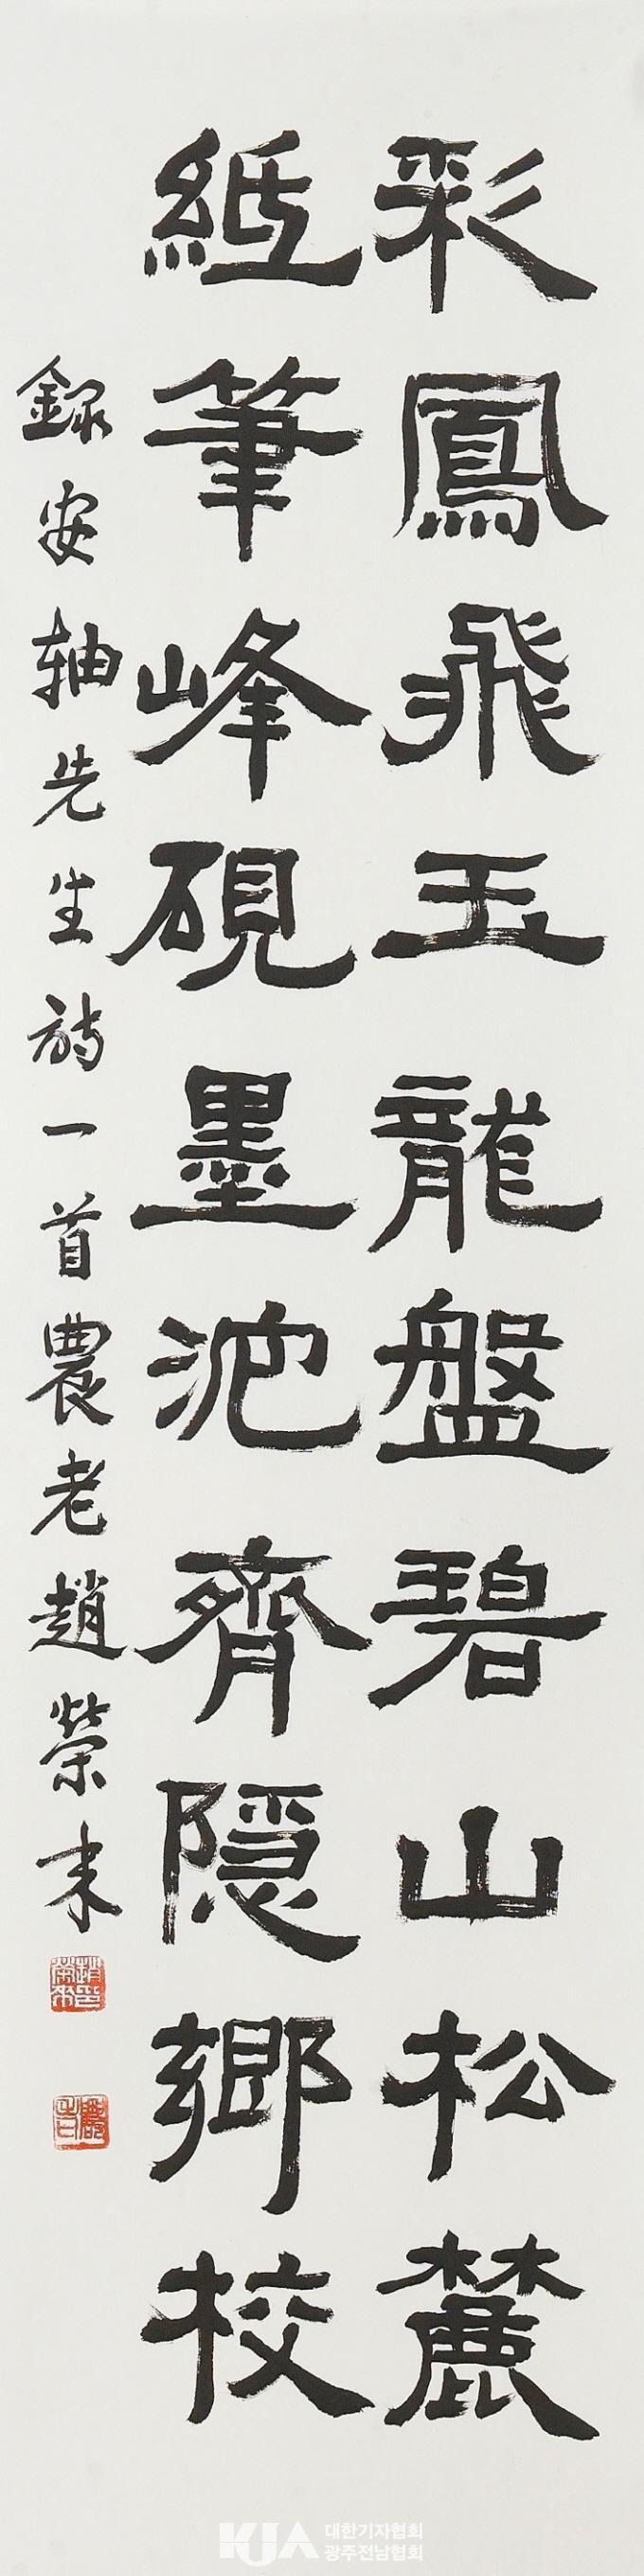 彩鳳飛玉龍盤碧山松麓
紙筆峰硯墨池齊隱鄉校
錄安軸先生詩一首農老趙榮来
KJA 대한기자협회
광주전남협회